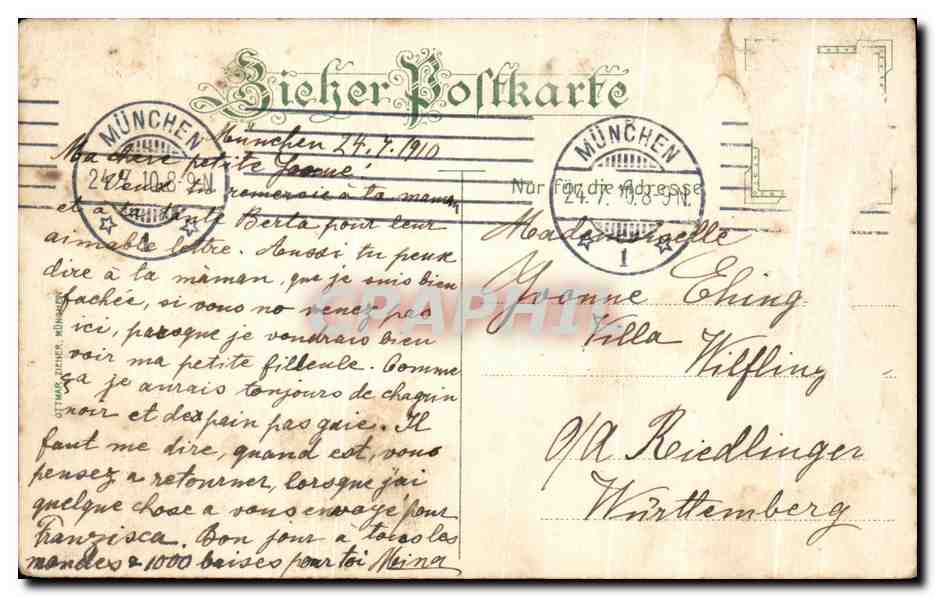 Zieher Postkarte
MÜNCHEN
24.7.10.8-9N.
1
MÜNCHEN
24.7.10.8-9N.
1
Nur für die Adresse
München 24.7.1910
Ma chère petite
Veux tu remercie à ta maman
et à ta tante Berta pour leur
aimable lettre. Aussi tu peux
dire à ta màman, que je suis bien
fachée, si vous no venez pas
ici, parsque je vondrais bien
voir ma petite filleule. Comme
ça je aurais tonjours de chagrin
noir et pain pas gaie. Il
faut me dire, quand est, vous
pensez a retourner, lorsque j'ai
quelque chose a vous envoyé pour
Franzisca. Bon jour a tous les
mondes & 1000 baises pour toi Mina
Mademoiselle
Yvonne Ehing
Villa
Wilfling
o/A Riedlinger
Württemberg
OTTMAR ZIEHER, MÜNCHEN
CPAPHIL